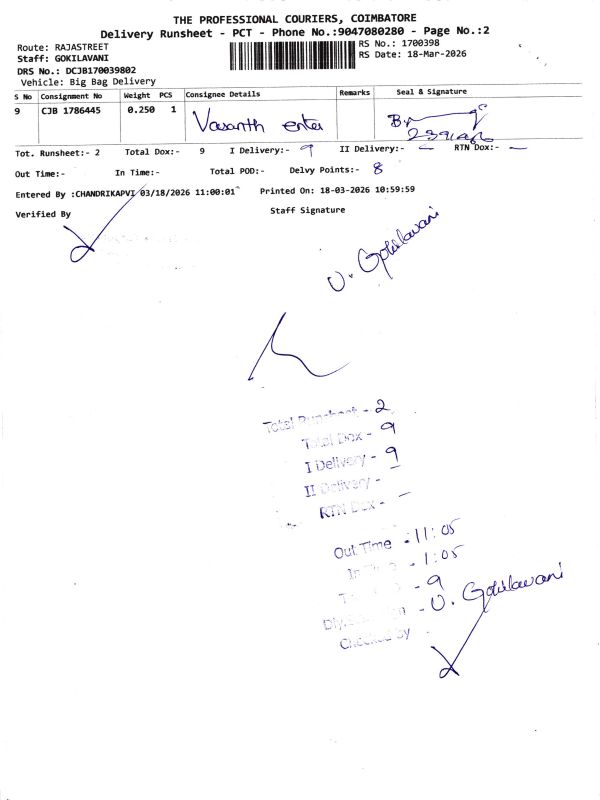 THE PROFESSIONAL COURIERS, COIMBATORE
Delivery Runsheet - PCT - Phone No.:9047080280 - Page No.:2
Route: RAJASTREET
RS No.: 1700398
Staff: GOKILAVANI
RS Date: 18-Mar-2026
DRS No.: DCJB170039802
Vehicle: Big Bag Delivery
S No Consignment No Weight PCS Consignee Details Remarks Seal & Signature
9 CJB 1786445 0.250 1 Vasanth enter
Tot. Runsheet:- 2 Total Dox:- 9 I Delivery:- 9 II Delivery:- - RTN Dox:- -
Out Time:- In Time:- Total POD:- Delvy Points:- 8
Entered By :CHANDRIKAPVI 03/18/2026 11:00:01 Printed On: 18-03-2026 10:59:59
Verified By Staff Signature
U. Gokilavani
Total Runsheet - 2
Total Dox - 9
I Delivery - 9
II Delivery - -
RTN Dox - -
Out Time - 11:05
In Time - 1:05
- 9
- U. Gokilavani
Checked by